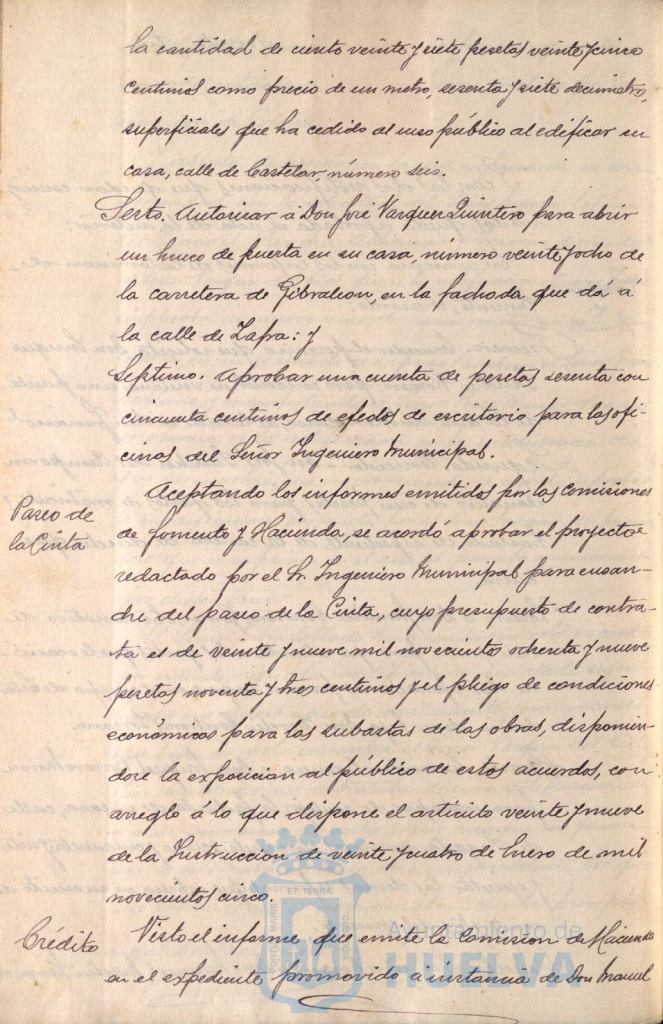 la cantidad de ciento veinte y siete pesetas veinte y cinco
centimos como precio de un metro, sesenta y siete decimetros,
superficiales que ha cedido al uso público al edificar su
casa, calle de Castelar, número seis.
Sexto. Autorizar á Don José Vazquez Quintero para abrir
un hueco de puerta en su casa, número veinte y ocho de
la carretera de Gibraleon, en la fachada que dá á
la calle de Zafra: y
Septimo. Aprobar una cuenta de pesetas sesenta con
cincuenta centimos de efectos de escritorio para las ofi-
cinas del Señor Ingeniero Municipal.
Paseo de
la Cinta
Aceptando los informes emitidos por las comisiones
de fomento y Hacienda, se acordó aprobar el proyecto
redactado por el Sr. Ingeniero Municipal para ensan-
che del paseo de la Cinta, cuyo presupuesto de contra-
ta es de veinte y nueve mil novecientos ochenta y nueve
pesetas noventa y tres centimos y el pliego de condiciones
económicas para las subastas de las obras, disponien-
dose la exposicion al público de estos acuerdos, con
arreglo á lo que dispone el articulo veinte y nueve
de la Instruccion de veinte y cuatro de Enero de mil
novecientos cinco.
Crédito
Visto el informe que emite la Comision de Hacienda
en el expediente promovido á instancia de Don Manuel
Ayuntamiento de
HUELVA